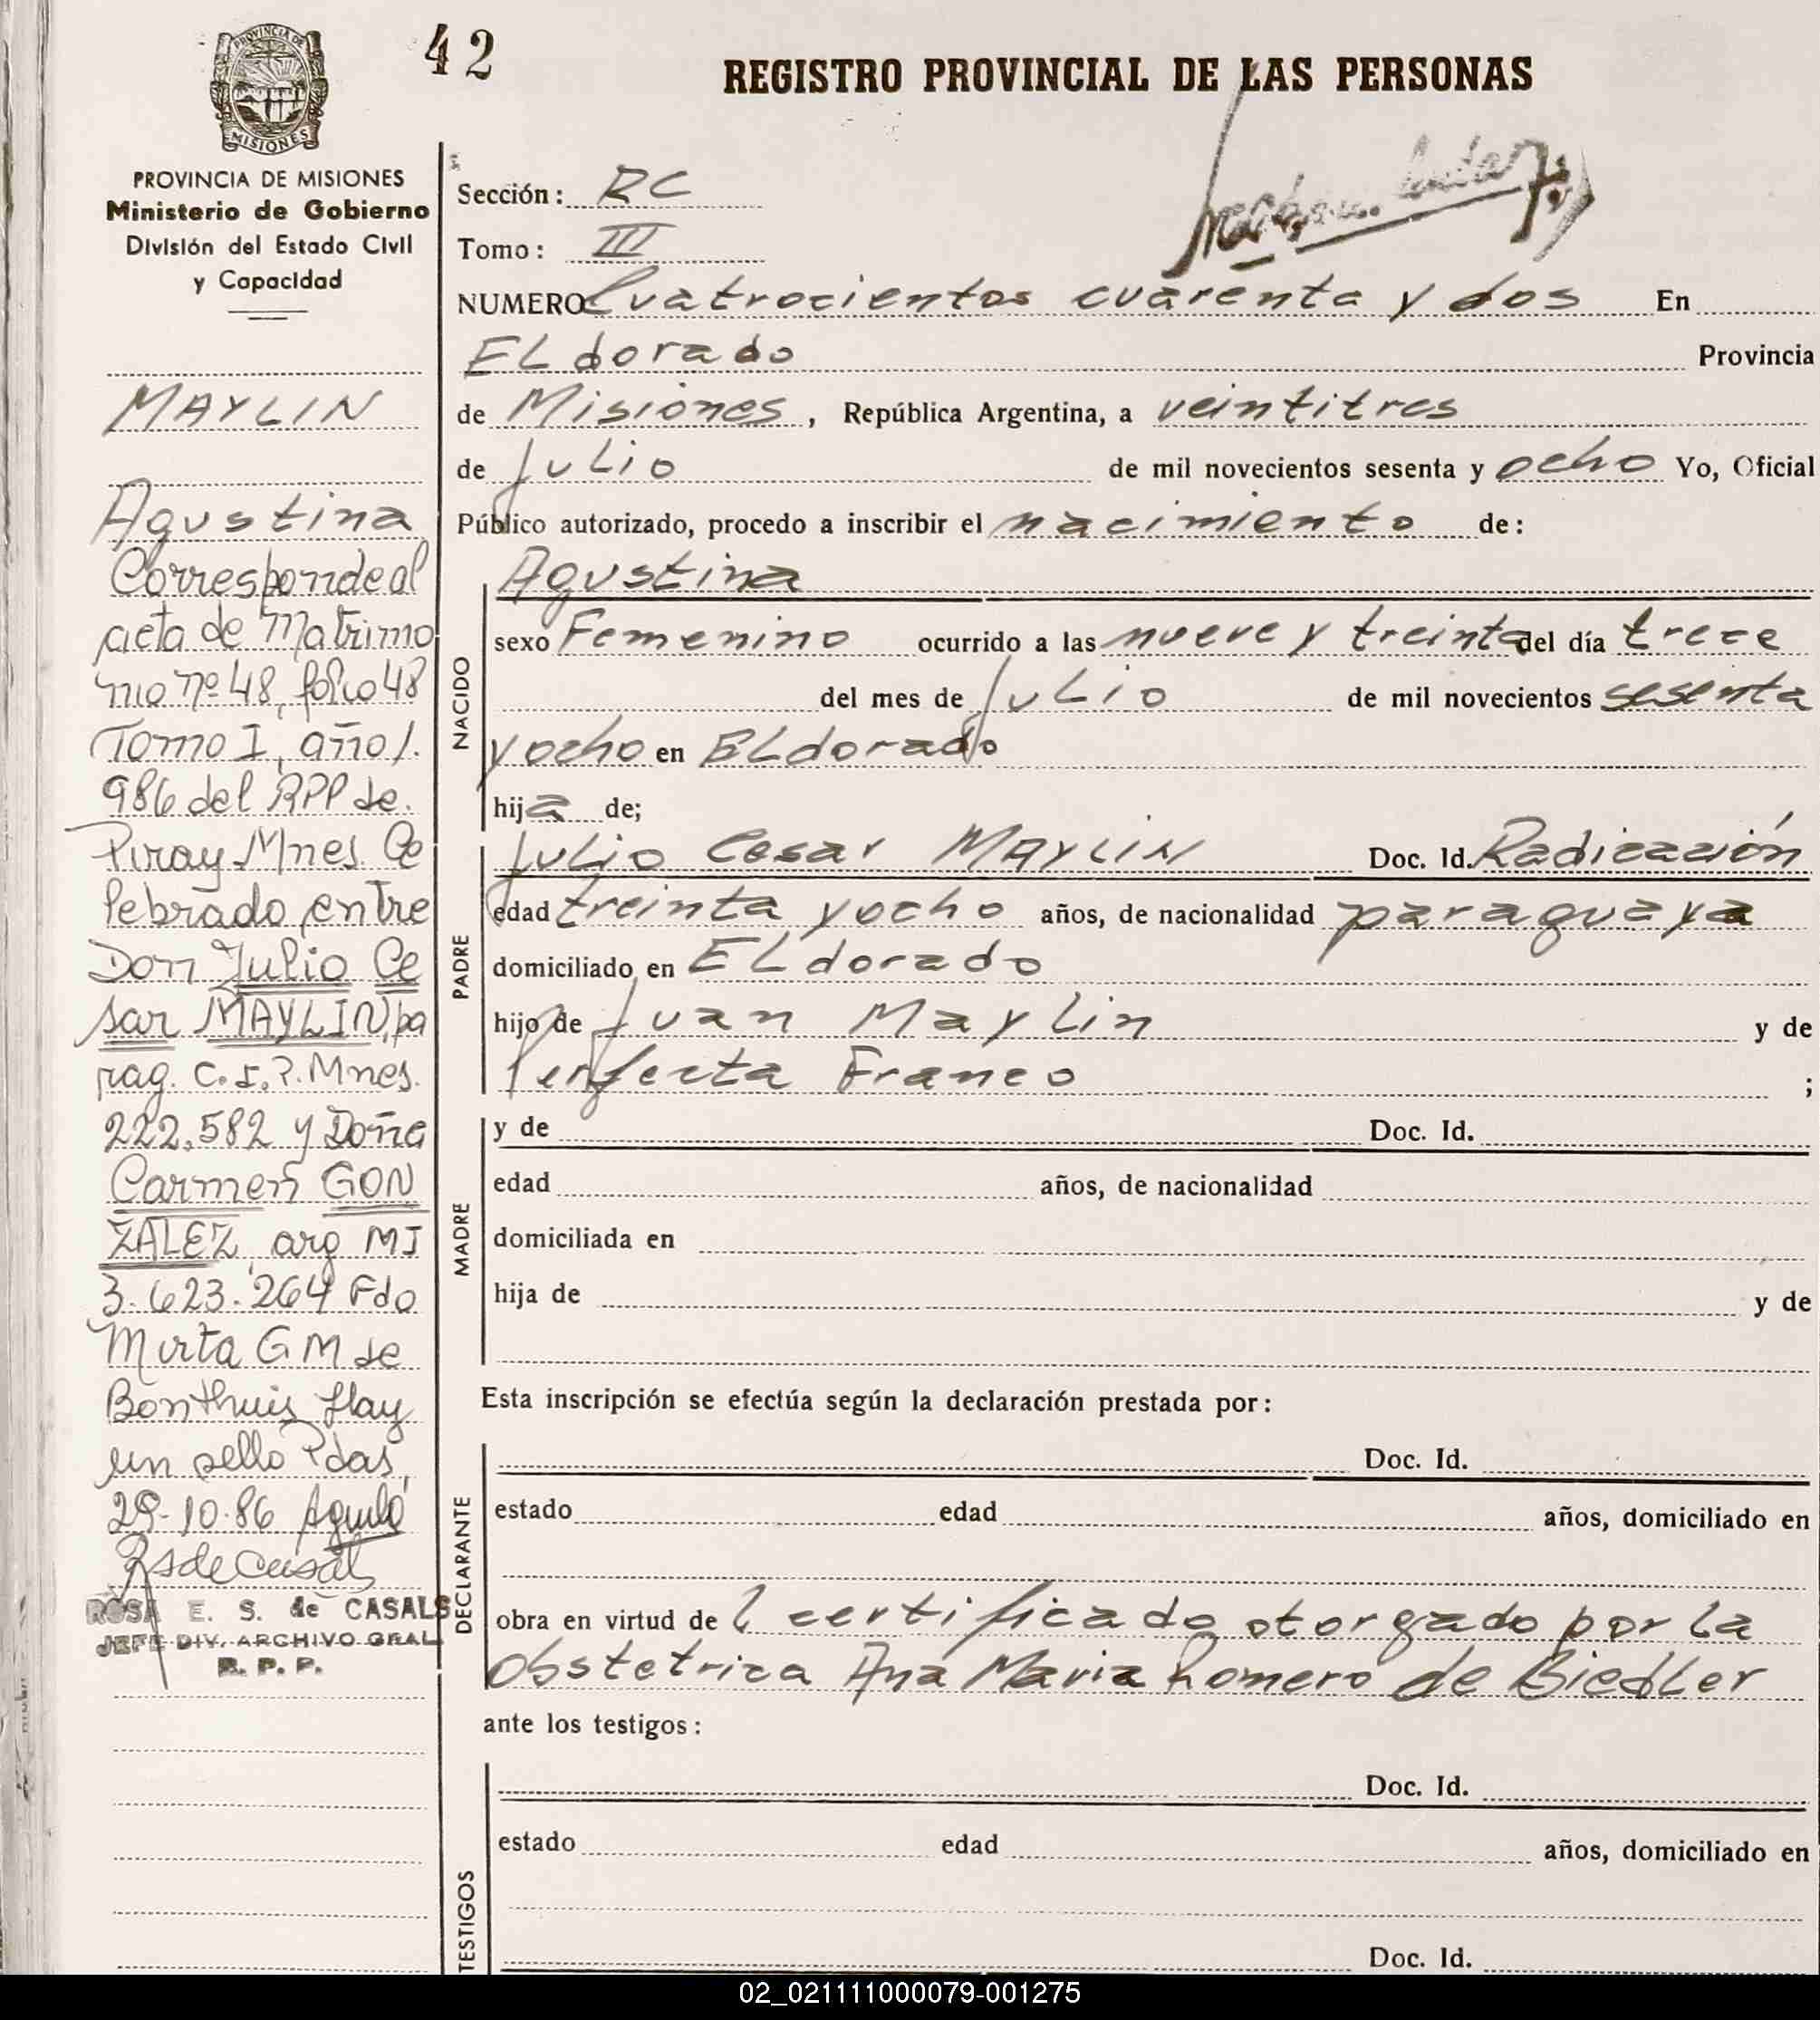 42
REGISTRO PROVINCIAL DE LAS PERSONAS
PROVINCIA DE MISIONES
PROVINCIA DE MISIONES
Ministerio de Gobierno
División del Estado Civil
y Capacidad
MAYLIN
Agustina
Corresponde al
acta de Matrimo
nio nº 48, folio 48
Tomo I, año 1.
986 del RPP de
Piray Mnes. Ce
lebrado entre
Don Julio Ce
sar MAYLIN, pa
rag. C.I.P. Mnes.
222.582 y Doña
Carmen GON
ZALEZ, arg MI
3.623.264 Fdo
Mirta G M de
Bonthuis Hay
un sello Pdas,
29-10-86
ROSA E. S. de CASALS
JEFE DIV. ARCHIVO GRAL
R. P. P.
Sección: RC
Tomo: III
NUMERO Cuatrocientos cuarenta y dos En
ELdorado Provincia
de Misiones, República Argentina, a veintitres
de Julio de mil novecientos sesenta y ocho Yo, Oficial
Público autorizado, procedo a inscribir el nacimiento de:
NACIDO
Agustina
sexo Femenino ocurrido a las nueve y treinta del día trece
del mes de Julio de mil novecientos sesenta
y ocho en ELdorado
hija de;
PADRE
Julio Cesar MAYLIN Doc. Id. Radicación
edad treinta y ocho años, de nacionalidad paraguaya
domiciliado en ELdorado
hijo de Juan Maylin y de
Perfecta Franco ;
MADRE
y de Doc. Id.
edad años, de nacionalidad
domiciliada en
hija de y de
Esta inscripción se efectúa según la declaración prestada por:
DECLARANTE
Doc. Id.
estado edad años, domiciliado en
obra en virtud de l certificado otorgado por la
obstetrica Ana Maria Romero de Biedler
ante los testigos:
TESTIGOS
Doc. Id.
estado edad años, domiciliado en
Doc. Id.
02_021111000079-001275